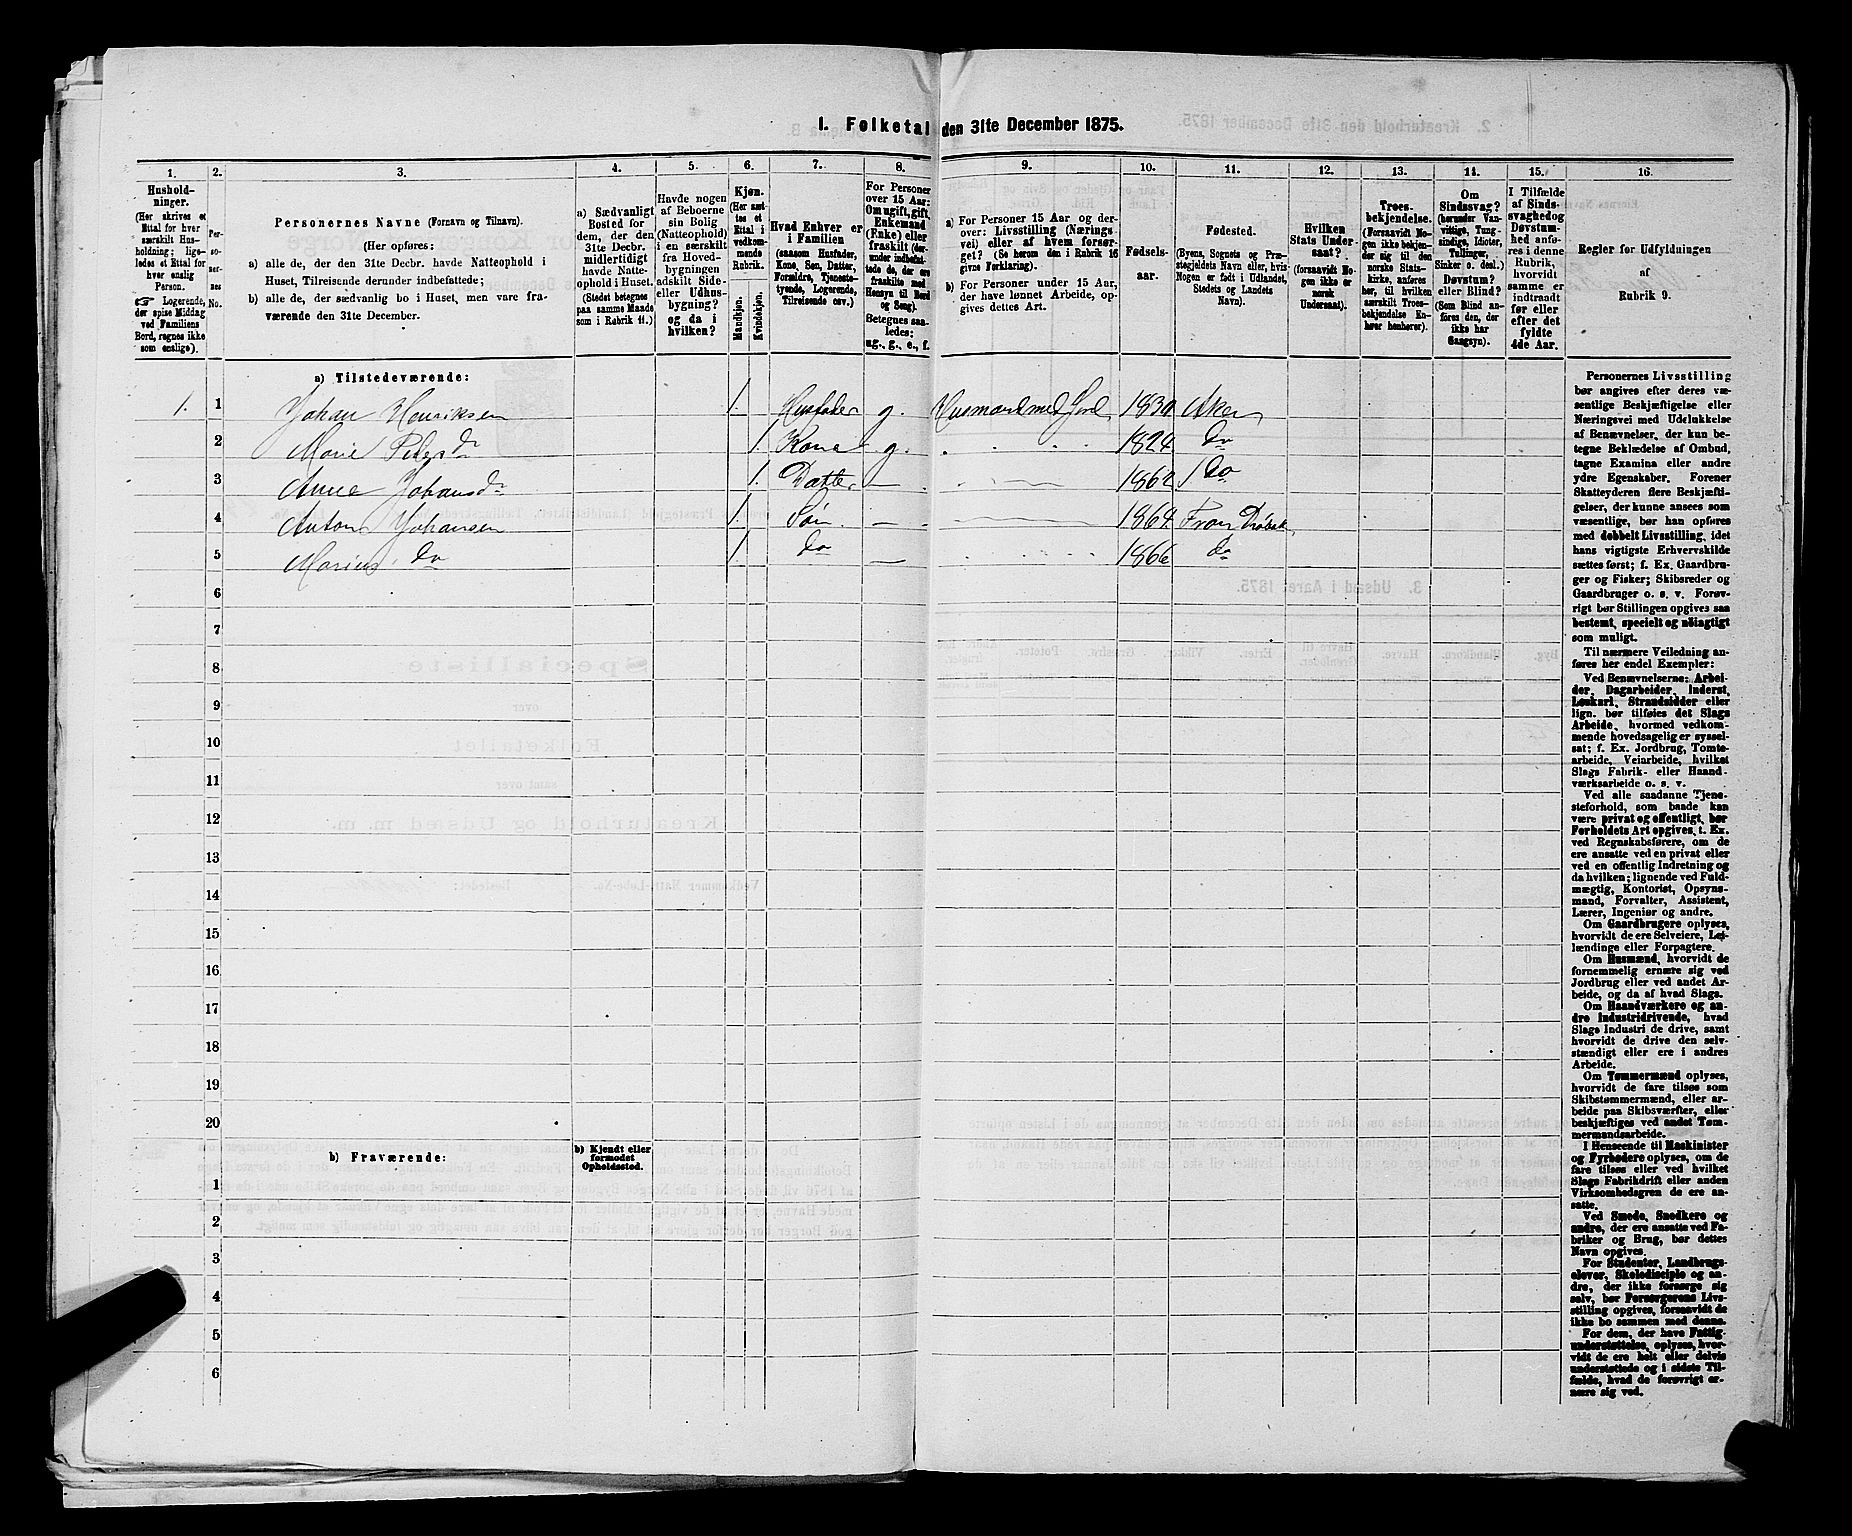 1. Folketal den 31te December 1875.
1.
Hushold-
ninger.
(Her skrives et
Ettal for hver
særskilt Hus-
holdning; lige-
ledes et Ettal for
hver enslig
Person.
Logerende,
der spise Middag
ved Familiens
Bord, regnes ikke
som enslige).
2.
Per-
so-
ner-
nes
No.
3.
Personernes Navne (Fornavn og Tilnavn).
(Her opføres:
a) alle de, der den 31te Decbr. havde Natteophold i
Huset, Tilreisende derunder indbefattede;
b) alle de, der sædvanlig bo i Huset, men vare fra-
værende den 31te December.
4.
a) Sædvanligt
Bosted for
dem, der den
31te Decbr.
midlertidigt
havde Natte-
ophold i Huset.
(Stedet betegnes
paa samme Maade
som i Rubrik 11.)
5.
Havde nogen
af Beboerne
sin Bolig
(Natteophold)
i en særskilt
fra Hoved-
bygningen
adskilt Side-
eller Udhus-
bygning?
og da i
hvilken?
6.
Kjøn.
(Her sæt-
tes et
Ettal i
vedkom-
mende
Rubrik.
Mandkjøn.
Kvindekjøn.
7.
Hvad Enhver er
i Familien
(saasom Husfader,
Kone, Søn, Datter,
Forældre, Tjeneste-
tyende, Logerende,
Tilreisende osv.)
8.
For Personer
over 15 Aar:
Om ugift, gift,
Enkemand
(Enke) eller
fraskilt (der-
under indbefat-
tede de, der ere
fraskilte med
Hensyn til Bord
og Seng).
Betegnes saa-
ledes:
ug., g., e., f.
9.
a) For Personer 15 Aar og der-
over: Livsstilling (Nærings-
vei) eller af hvem forsør-
get. (Se herom den i Rubrik 16
givne Forklaring).
b) For Personer under 15 Aar,
der have lønnet Arbeide, op-
gives dettes Art.
10.
Fødsels-
aar.
11.
Fødested.
(Byens, Sognets og Præ-
stegjeldets Navn eller, hvis
Nogen er født i Udlandet,
Stedets og Landets
Navn).
12.
Hvilken
Stats Under-
saat?
(forsaavidt No-
gen ikke er
norsk
Undersaat).
13.
Troes-
bekjendelse.
(Forsaavidt No-
gen ikke bekjen-
der sig til den
norske Stats-
kirke, anføres
her, til hvilken
særskilt Troes-
bekjendelse En-
hver henhører).
14.
Om
Sindssvag?
(herunder Van-
vittige, Tung-
sindige, Idioter,
Tullinger,
Sinker o. desl.)
Døvstum?
eller Blind?
(Som Blind an-
føres den, der
ikke har
Gangsyn).
15.
I Tilfælde
af Sinds-
svaghed og
Døvstum-
hed anfø-
res i denne
Rubrik,
hvorvidt
samme er
indtraadt
før eller
efter det
fyldte
4de Aar.
16.
Regler for Udfyldningen
af
Rubrik 9.
a) Tilstedeværende:
1. 1 Johan Henriksen 1. Husfader g. Husmand med Jord 1830 Aker
2 Marie Pedersdr 1. Kone g. 1824 do
3 Anne Johansdr 1. Datter — 1862 do
4 Anton Johansen 1. Søn — 1864 Fron Drøbak
5 Marius do 1. do — 1866 do
6
7
8
9
10
11
12
13
14
15
16
17
18
19
20
b) Fraværende:
b) Kjendt eller
formodet
Opholdssted.
1
2
3
4
5
6
Personernes Livsstilling
bør angives efter deres væ-
sentlige Beskjæftigelse eller
Næringsvei med Udelukkelse
af Benævnelser, der kun be-
tegne Beklædelse af Ombud,
tagne Examina eller andre
ydre Egenskaber. Forener
Skatteyderen flere Beskjæfti-
gelser, der kunne ansees som
væsentlige, bør han opføres
med dobbelt Livsstilling, idet
hans vigtigste Erhvervskilde
sættes først; f. Ex. Gaardbru-
ger og Fisker; Skibsreder og
Gaardbruger o. s. v. Forøv-
rigt bør Stillingen opgives saa
bestemt, specielt og nøiagtigt
som muligt.
Til nærmere Veiledning an-
føres her endel Exempler:
Ved Benævnelserne: Arbei-
der, Dagarbeider, Inderst,
Løskarl, Strandsidder eller
lign. bør tilføies det Slags
Arbeide, hvormed vedkom-
mende hovedsagelig er syssel-
sat; f. Ex. Jordbrug, Tomte-
arbeide, Veiarbeide, hvilket
Slags Fabrik- eller Haand-
værksarbeide o. s. v.
Ved alle saadanne Tjene-
steforhold, som baade kan
være privat og offentligt, bør
Forholdets Art opgives, t. Ex.
ved Regnskabsførere, om de
ere ansatte ved en privat eller
ved en offentlig Indretning og
da hvilken; lignende ved Fuld-
mægtig, Kontorist, Opsyns-
mand, Forvalter, Assistent,
Lærer, Ingeniør og andre.
Om Gaardbrugere oplyses,
hvorvidt de ere Selveiere, Lei-
lændinge eller Forpagtere.
Om Husmænd, hvorvidt de
fornemmelig ernære sig ved
Jordbrug eller ved andet Ar-
beide, og da af hvad Slags.
Om Haandværkere og an-
dre Industridrivende, hvad
Slags Industri de drive, samt
hvorvidt de drive den selv-
stændigt eller ere i andres
Arbeide.
Om Tømmermænd oplyses,
hvorvidt de fare tilsøs som
Skibstømmermænd, eller ar-
beide paa Skibsværfter, eller
beskjæftiges ved andet Tøm-
mermandsarbeide.
I Henseende til Maskinister
og Fyrbødere oplyses, om de
fare tilsøs eller ved hvilket
Slags Fabrikdrift eller anden
Virksomhedsgren de ere an-
satte.
Ved Smede, Snedkere og
andre, der ere ansatte ved Fa-
briker og Brug, bør dettes
Navn opgives.
For Studenter, Landbrugs-
elever, Skoledisciple og an-
dre, der ikke forsørge sig
selv, bør Forsørgerens Livs-
stilling opgives, forsaavidt de
ikke bo sammen med denne.
For dem, der have Fattig-
understøttelse, oplyses, hvor-
vidt de ere helt eller delvis
understøttede og i sidste Til-
fælde, hvad de forøvrigt er-
nære sig ved.